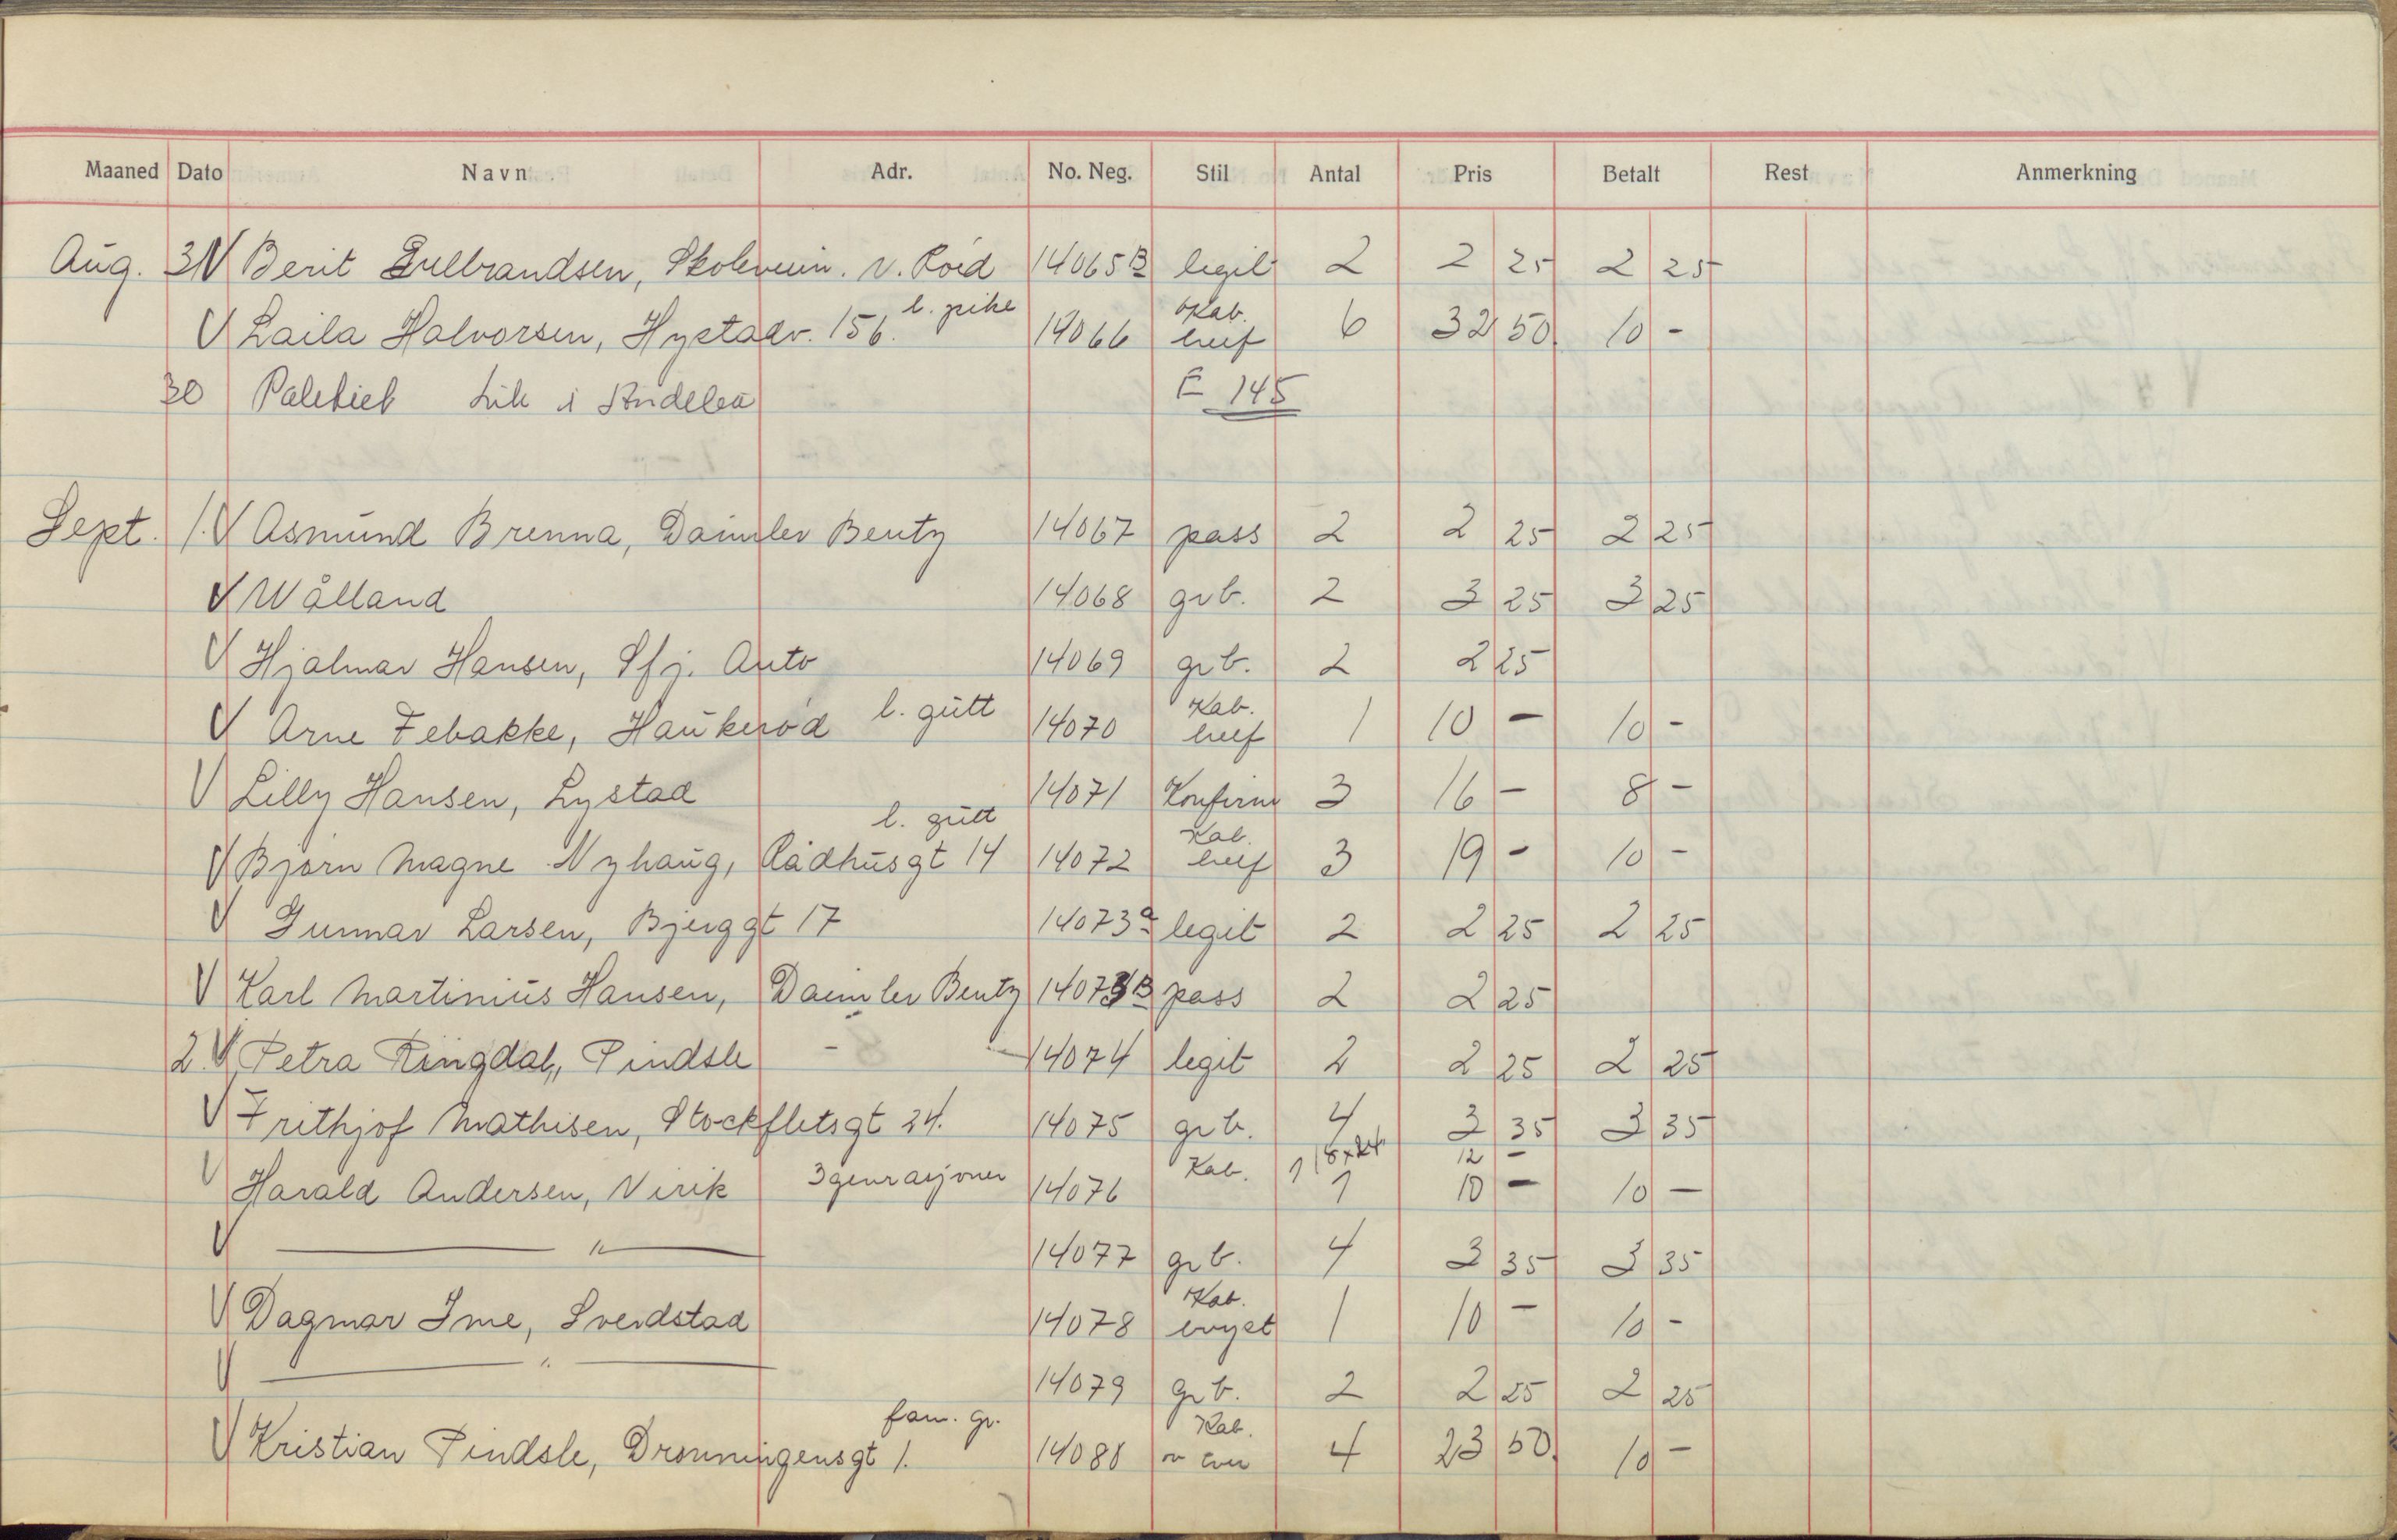 Maaned Dato Navn Adr. No. Neg. Stil Antal Pris Betalt Rest Anmerkning
Aug. 31 V Berit Gulbrandsen, v. Röd 14065B legit 2 2 25 2 25
l. pike Kab.
V Laila Halvorsen, Hystadv. 156. 14066 6 32 50 10 -
30 Lik i E 145
Sept. 1. V Asmund Brenna, Daimler Bentz 14067 pass 2 2 25 2 25
V Wålland 14068 grb. 2 3 25 3 25
V Hjalmar Hansen, Sfj. Auto 14069 grb. 2 2 25
l. gutt Kab.
V Arne Febakke, Haukeröd 14070 1 10 - 10 -
V Lilly Hansen, Lystad 14071 Konfirm 3 16 - 8 -
l. gutt Kab.
V Bjørn Magne Nyhaug, Rådhusgt 14 14072 3 19 - 10 -
V Gunnar Larsen, Bjerggt 17 14073a legit 2 2 25 2 25
V Karl Martinius Hansen, Daimler Bentz 14073B pass 2 2 25
2. V Petra Ringdal, Pindsle - 14074 legit 2 2 25 2 25
V Frithjof Mathisen, Stockfletsgt 24. 14075 grb. 4 3 35 3 35
3 genrasjoner Kab. 1 18x24 12 -
V Harald Andersen, Virik 14076 1 10 - 10 -
V — " — 14077 grb. 4 3 35 3 35
Kab.
V Dagmar Ime, Sverdstad 14078 bryst 1 10 - 10 -
V — " — 14079 grb. 2 2 25 2 25
fam. gr. Kab.
V Kristian Pindsle, Dronningensgt 1. 14080 4 23 50. 10 -